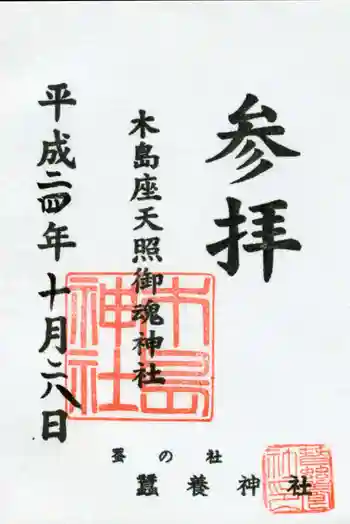 参拝
木島座天照御魂神社
平成二四年十月二八日
木島神社
蚕の社
蠶養神社